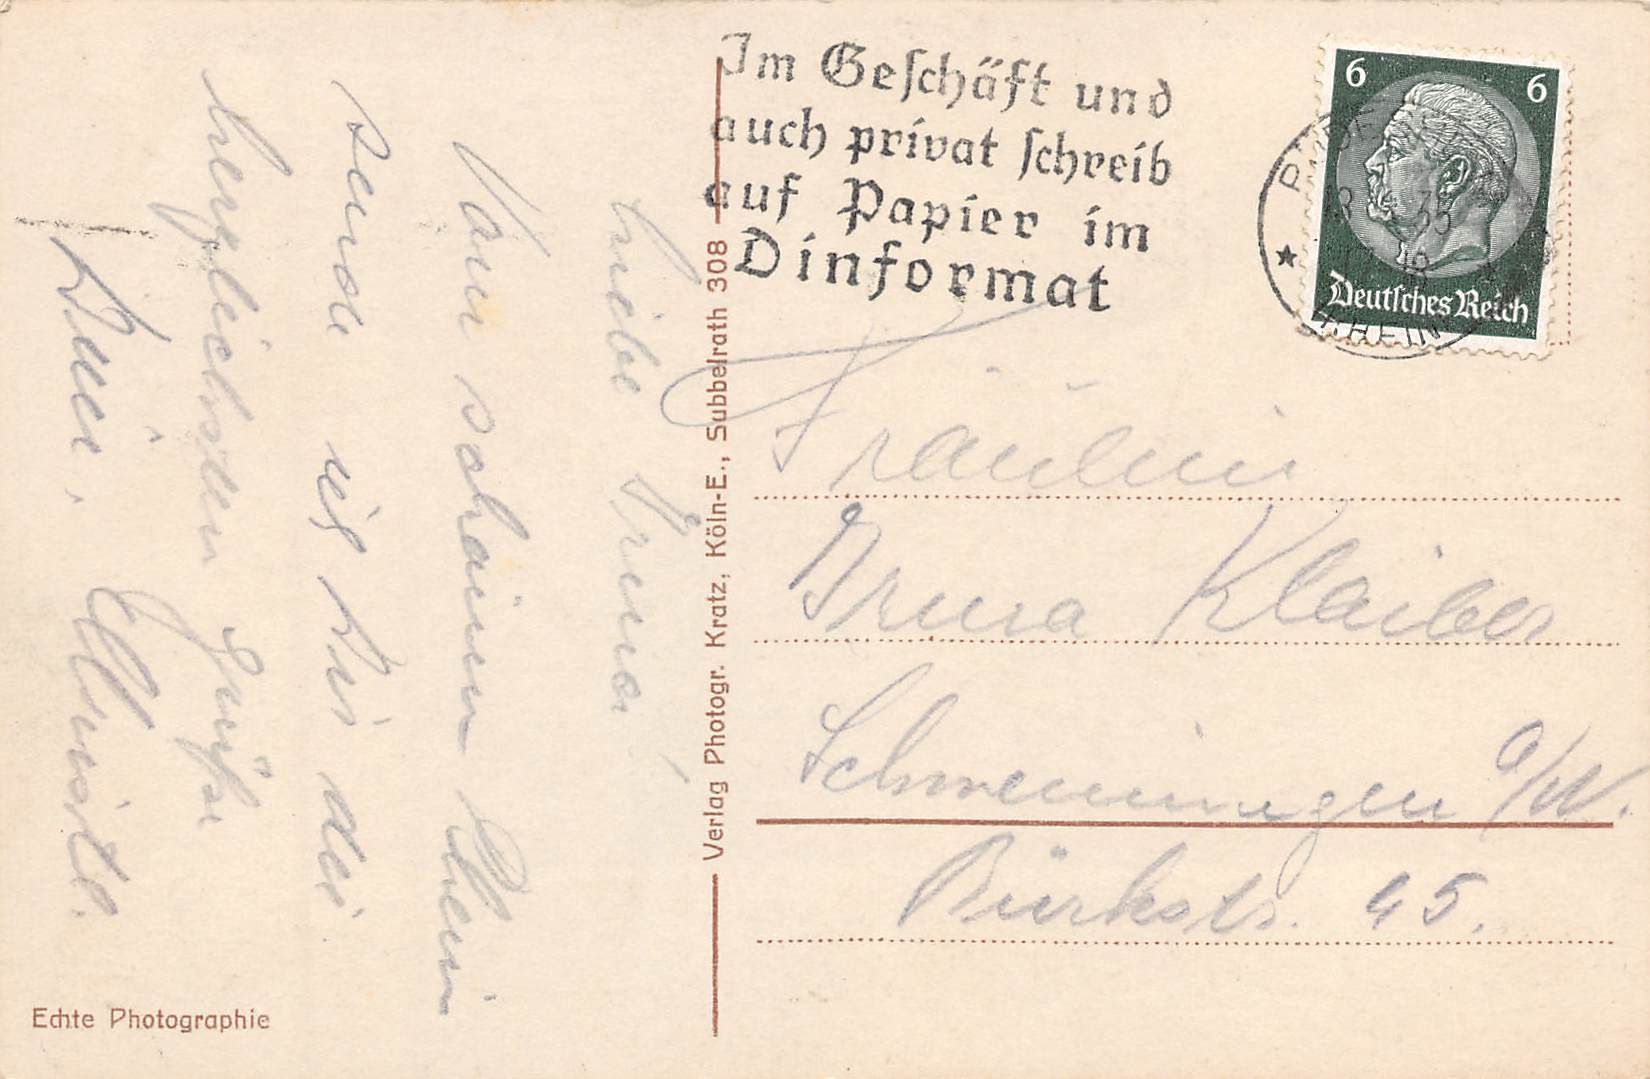 Im Geschäft und
auch privat schreib
auf Papier im
Dinformat
6 6
Deutsches Reich
Fräulein
Bruna Klaiber
Schwenningen a/N.
Bürkstr. 45.
Verlag Photogr. Kratz, Köln-E., Subbelrath 308
Liebe Bruna!
Vom schönen Rhein
sende ich Dir die
herzlichsten Grüße
Deine
Echte Photographie